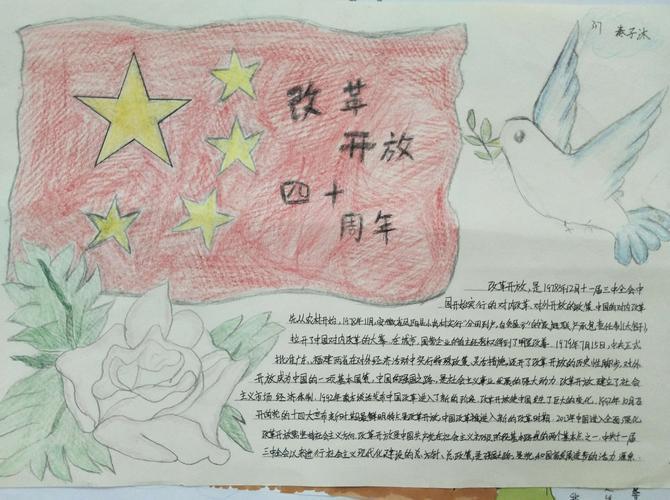 改革
开放
四十
周年
改革开放，是1978年12月十一届三中全会中
国开始实行的对内改革、对外开放的政策。中国的对内改革
先从农村开始，1978年11月，安徽省凤阳县小岗村实行"分田到户，自负盈亏"的家庭联产承包责任制(大包干)，
拉开了中国对内改革的大幕。在城市，国营企业的自主经营权得到了明显改善。1979年7月15日，中央正式
批准广东、福建两省在对外经济活动中实行特殊政策、灵活措施，迈开了改革开放的历史性脚步，对外
开放成为中国的一项基本国策，中国的强国之路，是社会主义事业发展的强大动力。改革开放建立了社会
主义市场经济体制。1992年南方谈话发布中国改革进入了新的阶段。改革开放使中国发生了巨大的变化。1992年10月召
开的 的十四大宣布新时期最鲜明特点是改革开放，中国改革进入新的改革时期。2013年中国进入全面深化
改革 坚持社会主义方向。改革开放是中国共产党在社会主义初级阶段基本路线的两个基本点之一。中共十一届
三中全会以来进行社会主义现代化建设的总方针、总政策，是强国之路，是党和国家发展进步的活力源泉。